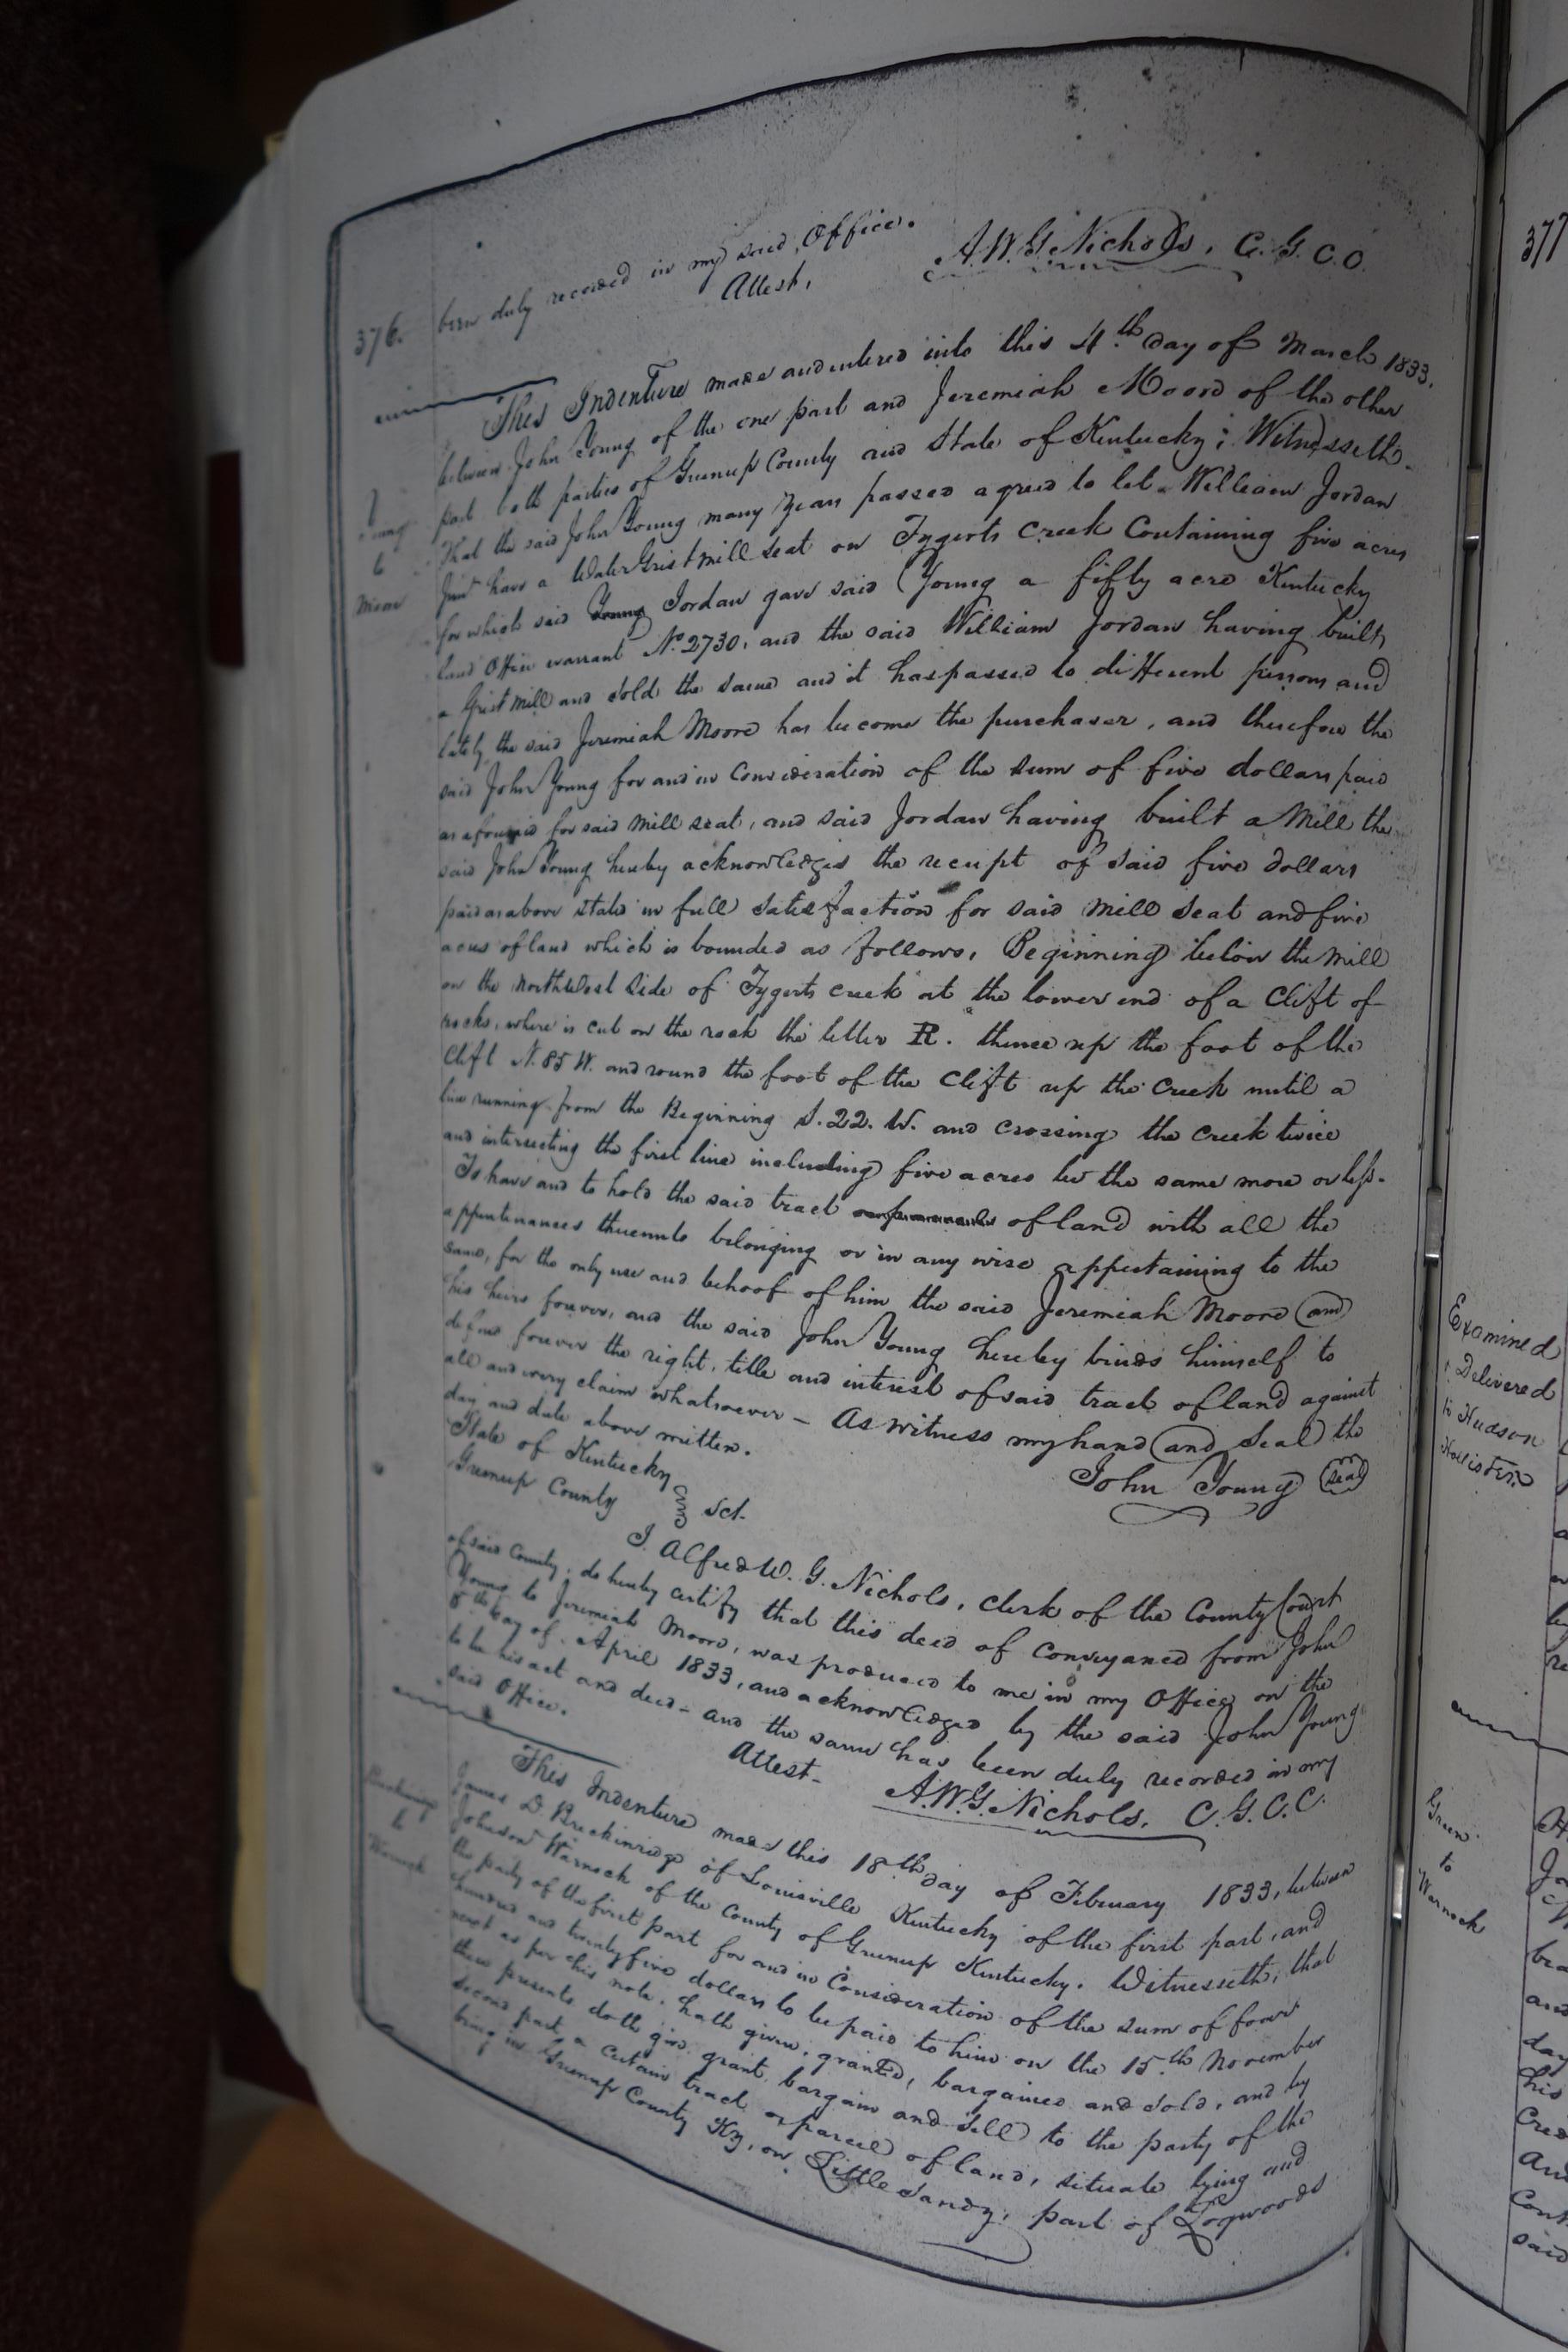 376.
been duly recorded in my said Office.
Attest, A.W.G. Nichols, C.G.C.C.
This Indenture made and entered into this 4th day of March 1833.
between John Young of the one part and Jeremiah Moore of the other
part both parties of Greenup County and State of Kentucky; Witnesseth.
Young
to
Moore
That the said John Young many years passed agreed to let William Jordan
Junr have a Water Grist mill seat on Tygerts Creek Containing five acres
for which said Young Jordan gave said Young a fifty acre Kentucky
land Office warrant No. 2730, and the said William Jordan having built
a Grist Mill and sold the same and it has passed to different persons and
lately the said Jeremiah Moore has become the purchaser, and therefore the
said John Young for and in Consideration of the sum of five dollars paid
as aforesaid for said Mill seat, and said Jordan having built a Mill the
said John Young hereby acknowledges the receipt of said five dollars
paid as above stated in full satisfaction for said Mill Seat and five
acres of land which is bounded as follows, Beginning below the Mill
on the North West Side of Tygerts creek at the lower end of a Clift of
rocks, where is cut on the rock the letter R. thence up the foot of the
Clift N. 85 W. and round the foot of the Clift up the Creek until a
line running from the Beginning S. 22. W. and crossing the Creek twice
and intersecting the first line including five acres be the same more or less.
To have and to hold the said tract of land with all the
appurtenances thereunto belonging or in any wise appertaining to the
same, for the only use and behoof of him the said Jeremiah Moore and
his heirs forever, and the said John Young hereby binds himself to
defend forever the right, title and interest of said tract of land against
all and every claim whatsoever – As witness my hand and Seal the
day and date above written.
John Young Seal
State of Kentucky
Greenup County Sct.
I. Alfred W. G. Nichols, Clerk of the County Court
of said County, do hereby certify that this deed of conveyance from John
Young to Jeremiah Moore, was produced to me in my Office on the
8th day of April 1833, and acknowledged by the said John Young
to be his act and deed – and the same has been duly recorded in my
said Office.
Attest – A.W.G. Nichols, C.G.C.C.
Breckinridge
to
Warnock
This Indenture made this 18th day of February 1833, between
James D. Breckinridge of Louisville Kentucky of the first part, and
Johnson Warnock of the County of Greenup Kentucky. Witnesseth, that
the party of the first part for and in Consideration of the sum of four
hundred and twenty five dollars to be paid to him on the 15th November
next as per his note. hath given, granted, bargained and sold, and by
these presents doth give grant, bargain and sell to the party of the
second part a certain tract or parcel of land, situate lying and
being in Greenup County Ky, on Little Sandy, part of Logwoods
377
Examined
& Delivered
to Hudson
Hollister
Green
to
Warnock